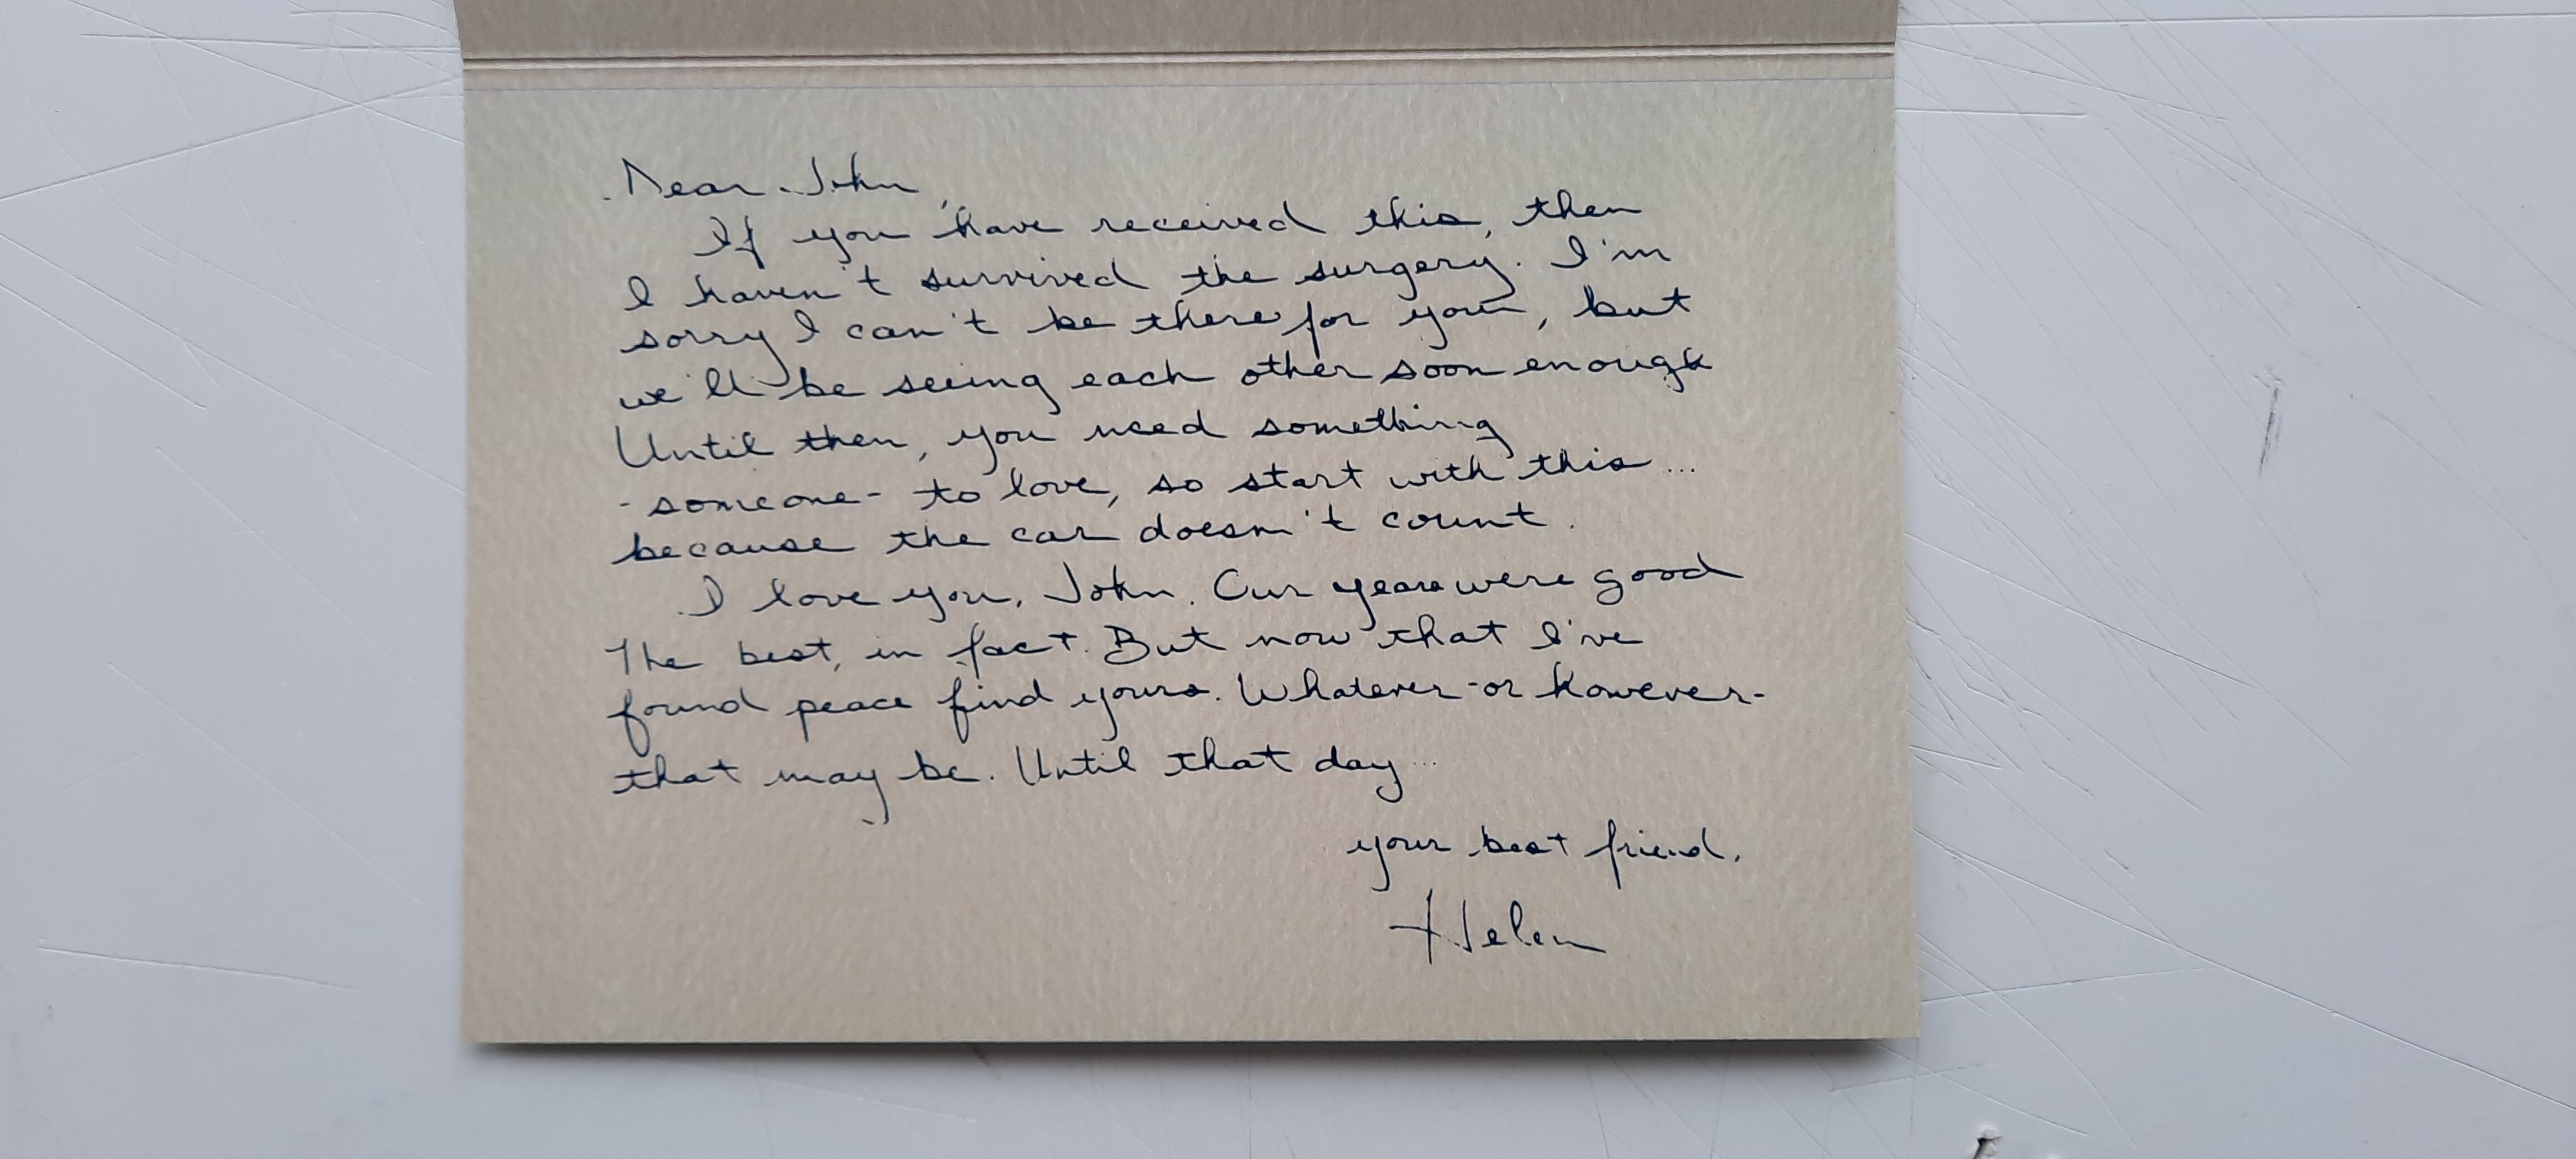 Dear John,
If you have received this, then
I haven't survived the surgery. I'm
sorry I can't be there for you, but
we'll be seeing each other soon enough
Until then, you need something
- someone - to love, so start with this...
because the car doesn't count.
I love you, John. Our years were good
The best, in fact. But now that I've
found peace find yours. Whatever - or however -
that may be. Until that day...
your best friend,
Helen